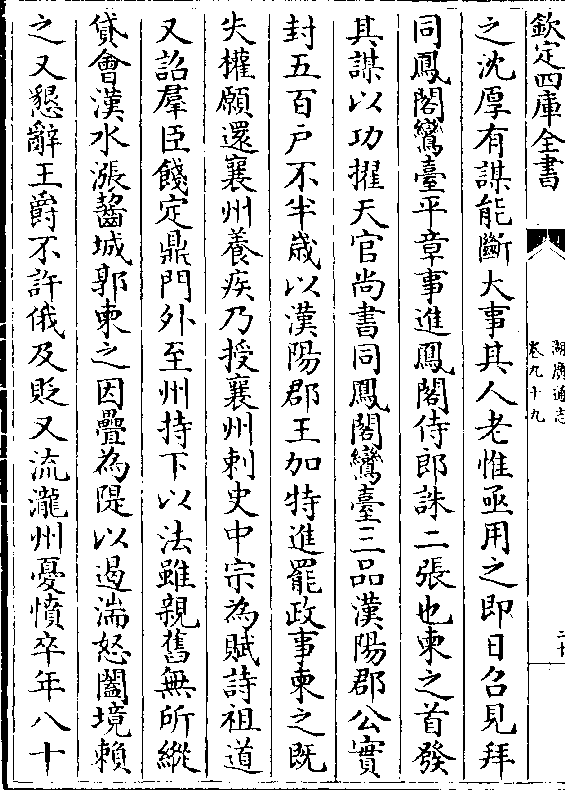 欽定四庫全書
湖廣通志
卷九十九
之沈厚有謀能斷大事其人老惟亟用之即日召見拜
同鳳閣鸞臺平章事進鳳閣侍郎誅二張也柬之首發
其謀以功擢天官尚書同鳳閣鸞臺三品漢陽郡公實
封五百户不半歳以漢陽郡王加特進罷政事柬之既
失權願還襄州養疾乃授襄州刺史中宗為賦詩祖道
又詔羣臣餞定鼎門外至州持下以法雖親舊無所縱
貸會漢水漲齧城郭柬之因壘為隄以遏湍怒闔境賴
之又懇辭王爵不許俄及貶又流瀧州憂憤卒年八十